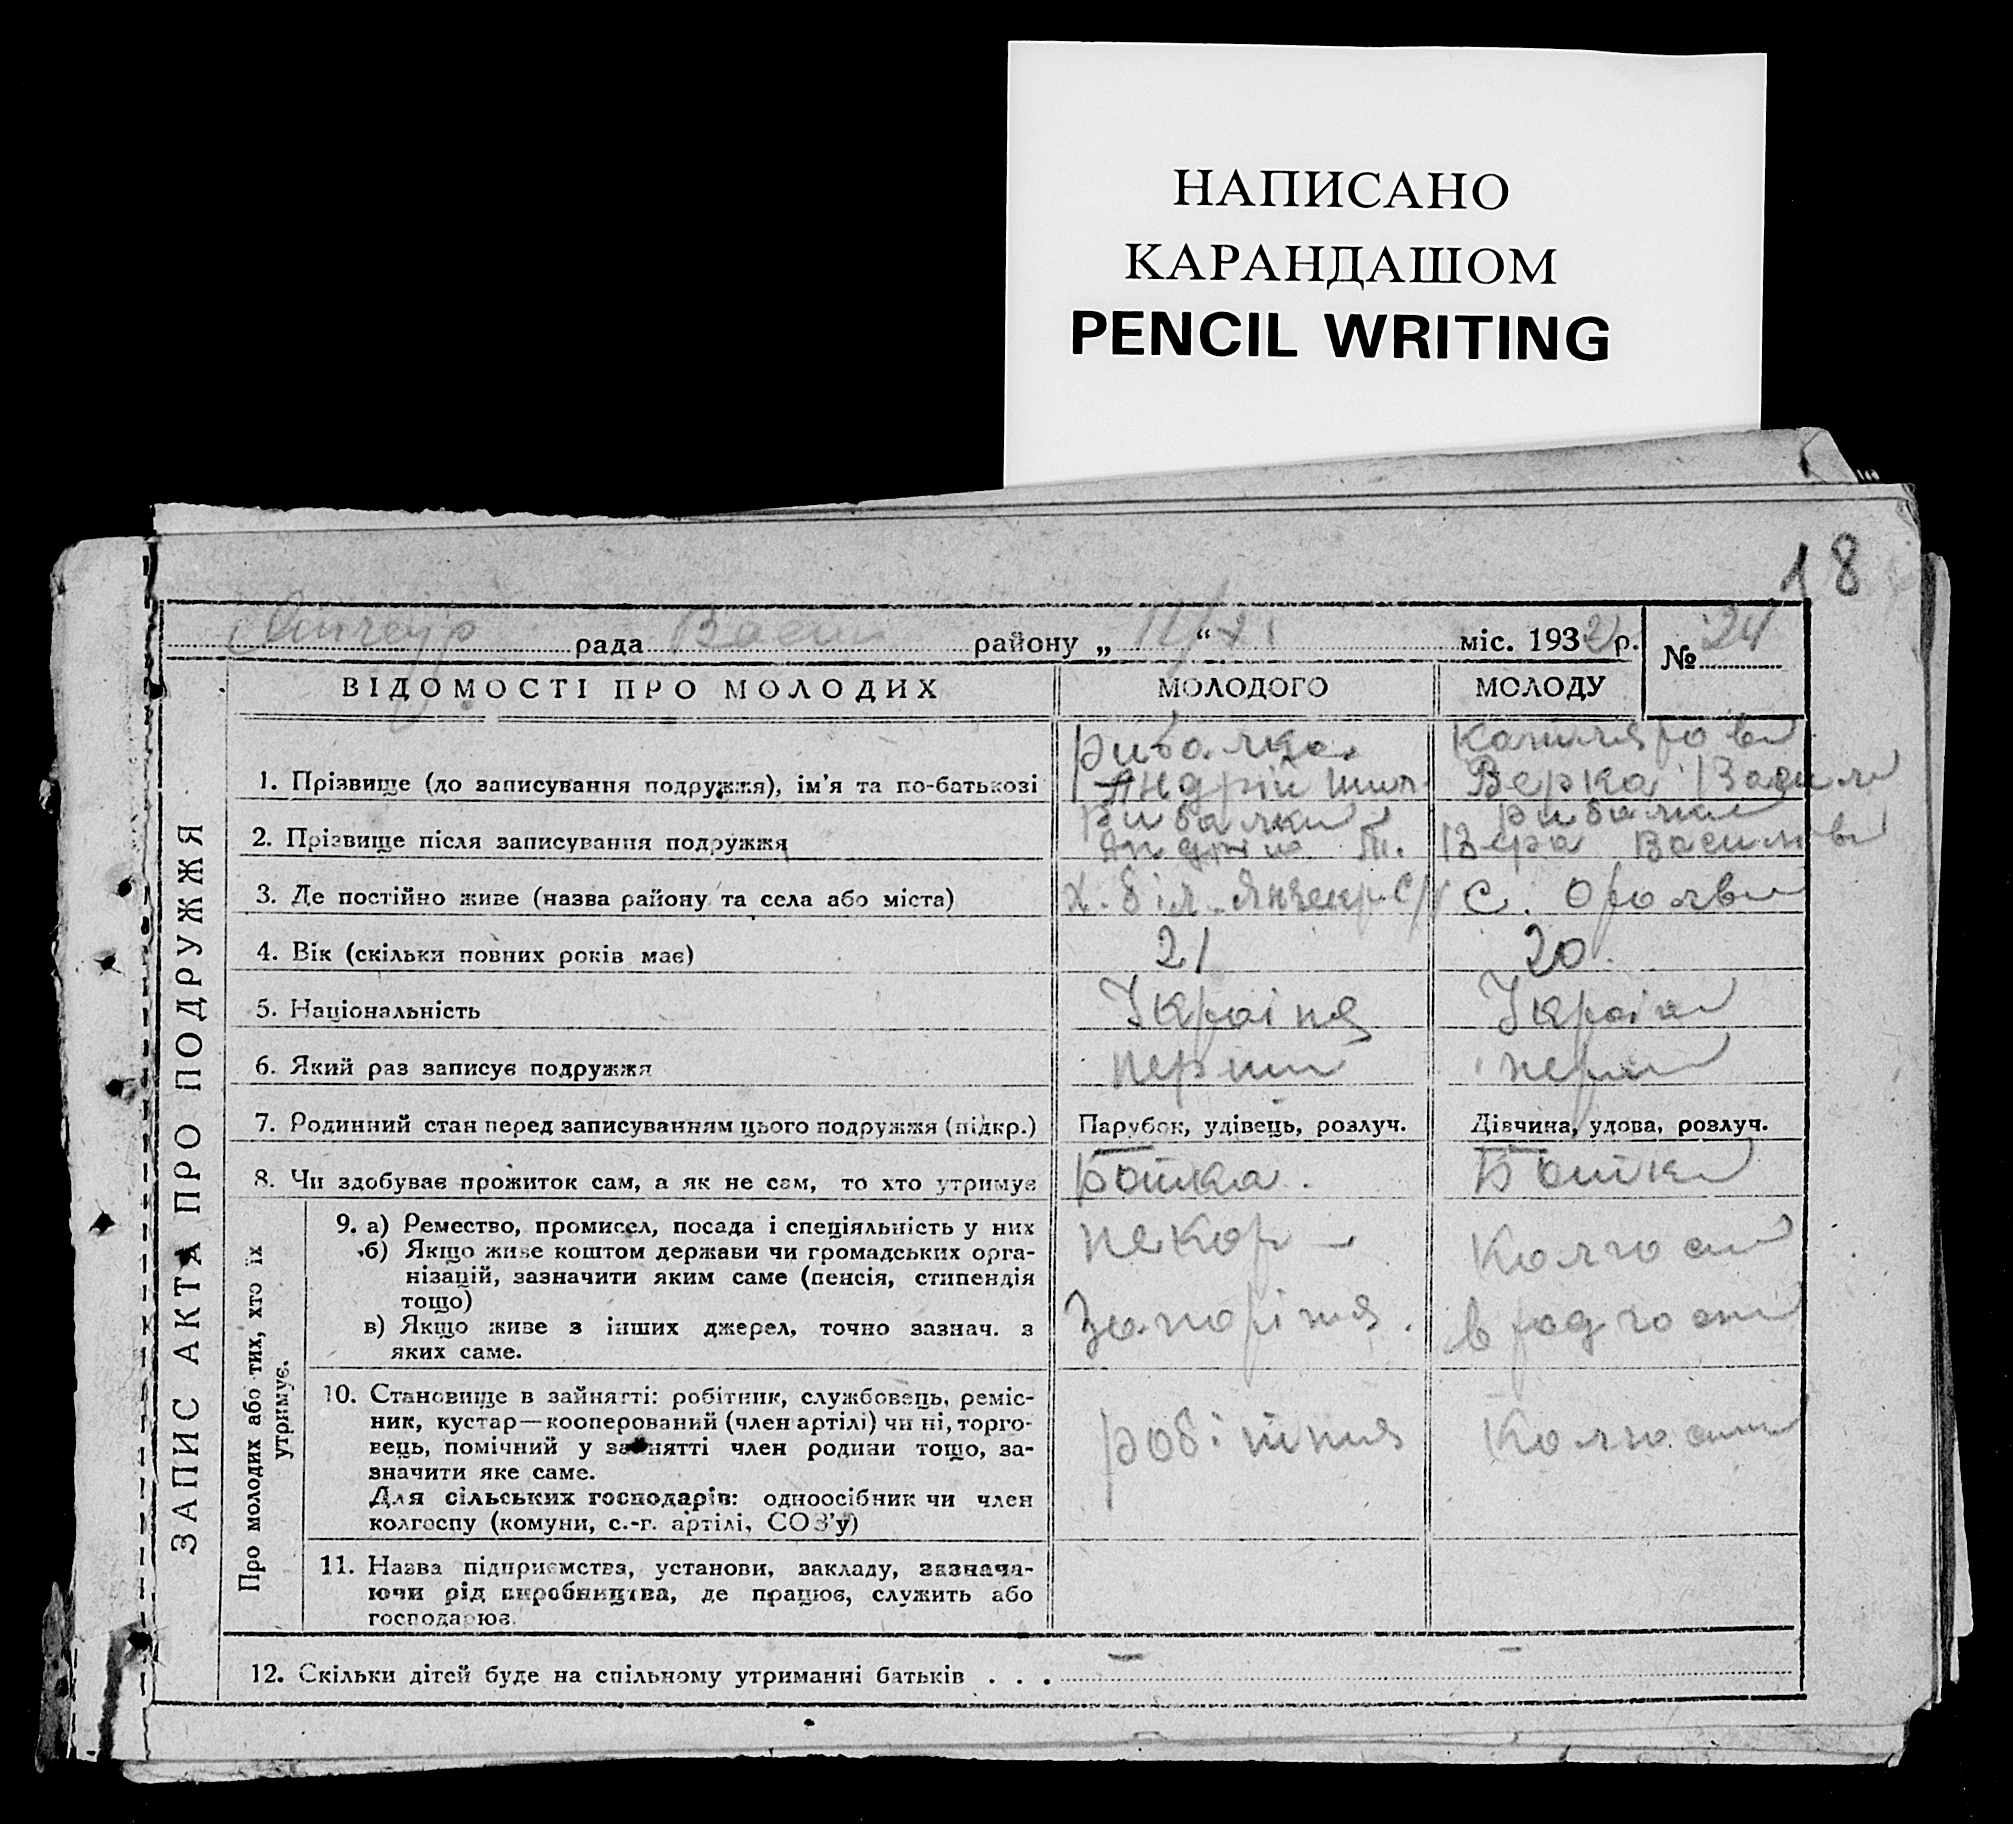 НАПИСАНО
КАРАНДАШОМ
PENCIL WRITING
18
рада району „ 11/XI “ міс. 1932 р. № 24
ВІДОМОСТІ ПРО МОЛОДИХ МОЛОДОГО МОЛОДУ
ЗАПИС АКТА ПРО ПОДРУЖЖЯ
Рибалка
1. Прізвище (до записування подружжя), ім’я та по-батькові Андрій Верка Васил
Рибалки Рибалки
2. Прізвище після записування подружжя Т. Вера
3. Де постійно живе (назва району та села або міста) х. біл. с.
4. Вік (скільки повних років має) 21 20.
5. Національність Україня Україн
6. Який раз записує подружжя перши перш
7. Родинний стан перед записуванням цього подружжя (підкр.) Парубок, удівець, розлуч. Дівчина, удова, розлуч.
8. Чи здобуває прожиток сам, а як не сам, то хто утримує Батка. Батки
Про молодих або тих, хто їх утримує.
9. а) Ремество, промисел, посада і спеціяльність у них пекор –
б) Якщо живе коштом держави чи громадських орга-
нізацій, зазначити яким саме (пенсія, стипендія
тощо)
в) Якщо живе з інших джерел, точно зазнач. з
яких саме.
Запоріжя. в радгосп
10. Становище в зайнятті: робітник, службовець, реміс-
ник, кустар—кооперований (член артілі) чи ні, торго-
вець, помічний у зайнятті член родини тощо, за-
значити яке саме.
Для сільських господарів: одноосібник чи член
колгоспу (комуни, с.-г. артілі, СОЗ’у)
11. Назва підприємства, установи, закладу, зазнача-
ючи рід виробництва, де працює, служить або
господарює.
12. Скільки дітей буде на спільному утриманні батьків . . . – –